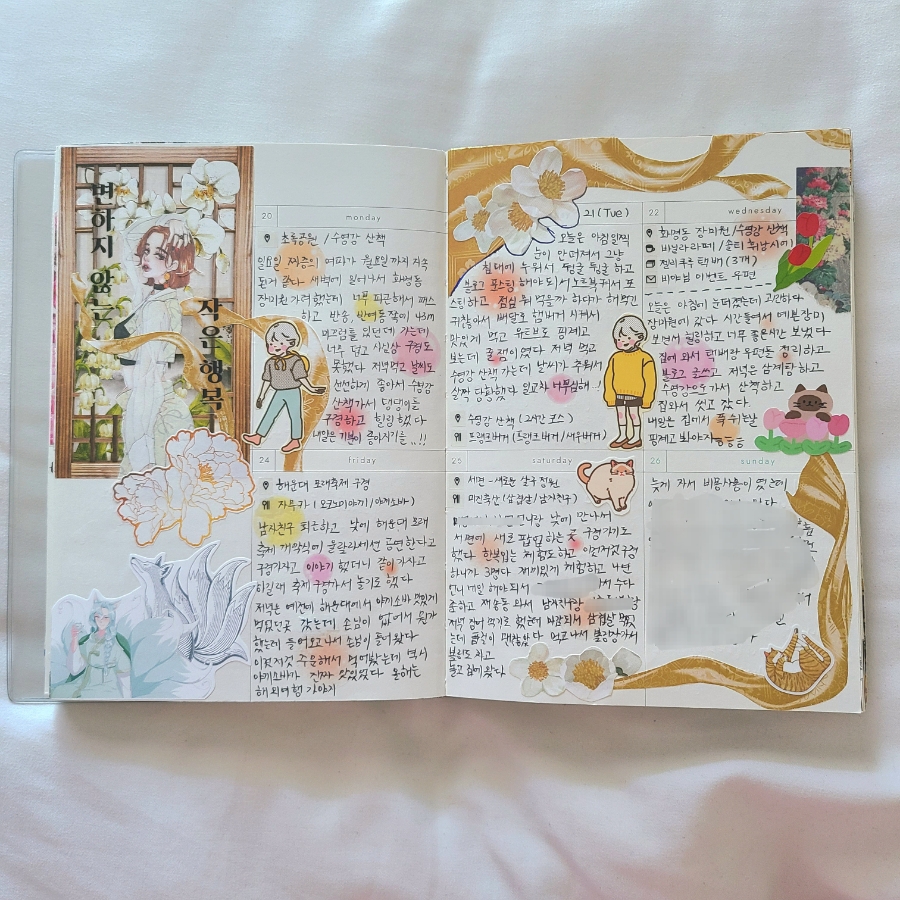 변하지 않는
작은 행복
20 monday
초록공원 / 수영강 산책
일요일 찌증의 여파가 월요일까지 지속
된거 같다 새벽에 일어나서 화명동
장미원 가려했는데 너무 피곤해서 패스
하고 반송, 반여동쪽에
너무 덥고 사실상 구경도
못했다 저녁먹고 날씨도
선선하게 좋아서 수영강
산책가서 댕댕이들
구경하고 힐링했다
내일은 기분이 좋아지기를..!!
21 (Tue)
오늘은 아침 일찍
눈이 안떠져서 그냥
침대에 누워서 뒹굴뒹굴 하고
블로그 포스팅 해야되서
스팅하고 점심 뭐먹을까 하다가 해먹긴
귀찮아서 배달로 햄버거 시켜서
맛있게 먹고 유튜브도 핑계고
보는데 꿀잼이였다 저녁 먹고
수영강 산책 가는데 날씨가 추워서
살짝 당황했다 일교차 너무심해..!
수영강 산책 (2시간 코스)
프랭크버거 (프랭크버거 / 새우버거)
22 wednesday
화명동 장미원 / 수영강 산책
바닐라라떼 /
택배 (3개)
이벤트 우편
오늘은 아침에 눈떠졌는데 고민하다
장미원에 갔다 시간들여서 예쁜장미
보면서 힐링하고 너무 좋은시간 보냈다
집에 와서 택배랑 우편물 정리하고
블로그 글쓰고 저녁은 삼계탕하고
수영강으로 가서 산책하고
집와서 씻고 잤다
내일은 집에서 푹쉬기만
핑계고 봐야지
24 friday
해운대 모래축제 구경
자투카 (오코노미야끼 / 야끼소바)
남자친구 퇴근하고 낮에 해운대 모래
축제 개막식에 울랄라세션 공연한다고
구경가자고 이야기 했더니 같이가자고
이길래 축제구경가서 놀기로 했다
저녁은 예전에 해운대에서 야끼소바 맛있게
먹었던곳 갔는데 손님이 없어서 뭔가
했는데 들어오고나서 손님이 줄서왔다
이것저것 주문해서 먹어봤는데 역시
야끼소바가 진짜 맛있었다 올해는
해외여행 가야지
25 saturday
서면 - 새로운 살구 정원
미진축산 (삼겹살 / 남자친구)
낮에 만나서
서면에 새로 팝업하는곳 구경가기도
했다 한복입는 체험도하고 이것저것구경
하니까 3명다 재미있게 체험하고 나면
언니 내일 해야되서
저녁 집에
는데 괜찮았다 먹고나서 볼링장가서
볼링도 치고
놀고 집에왔다
26 sunday
늦게 자서 비몽사몽이 였는데